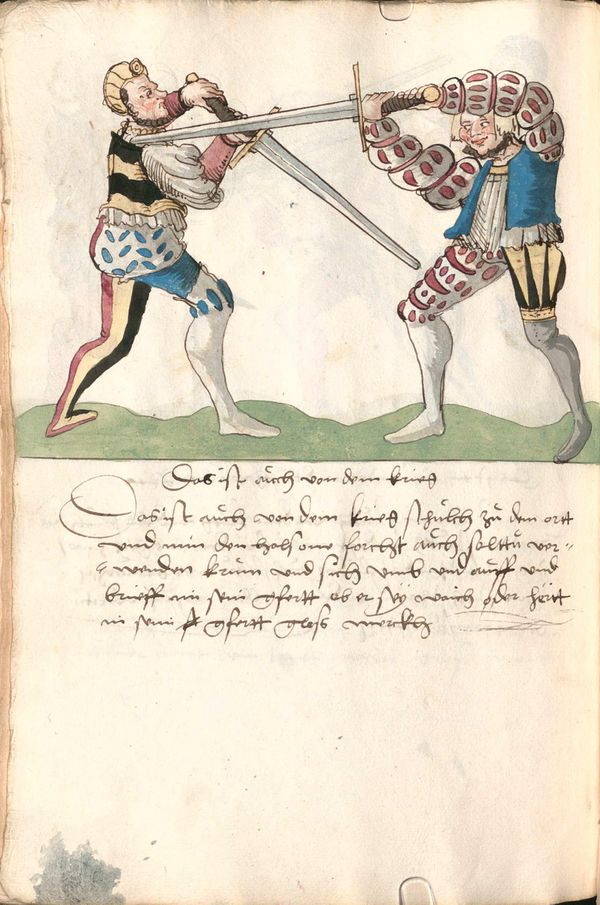 Das ist auch von dem krieg
Das ist auch von dem krieg schilch zu dem ortt
und nim den hals one forcht auch soltu ver=
wenden krum und sich umb und auff und
brieff im sein gfertt ob er sey waich oder hertt
in sein gfertt glos merckh